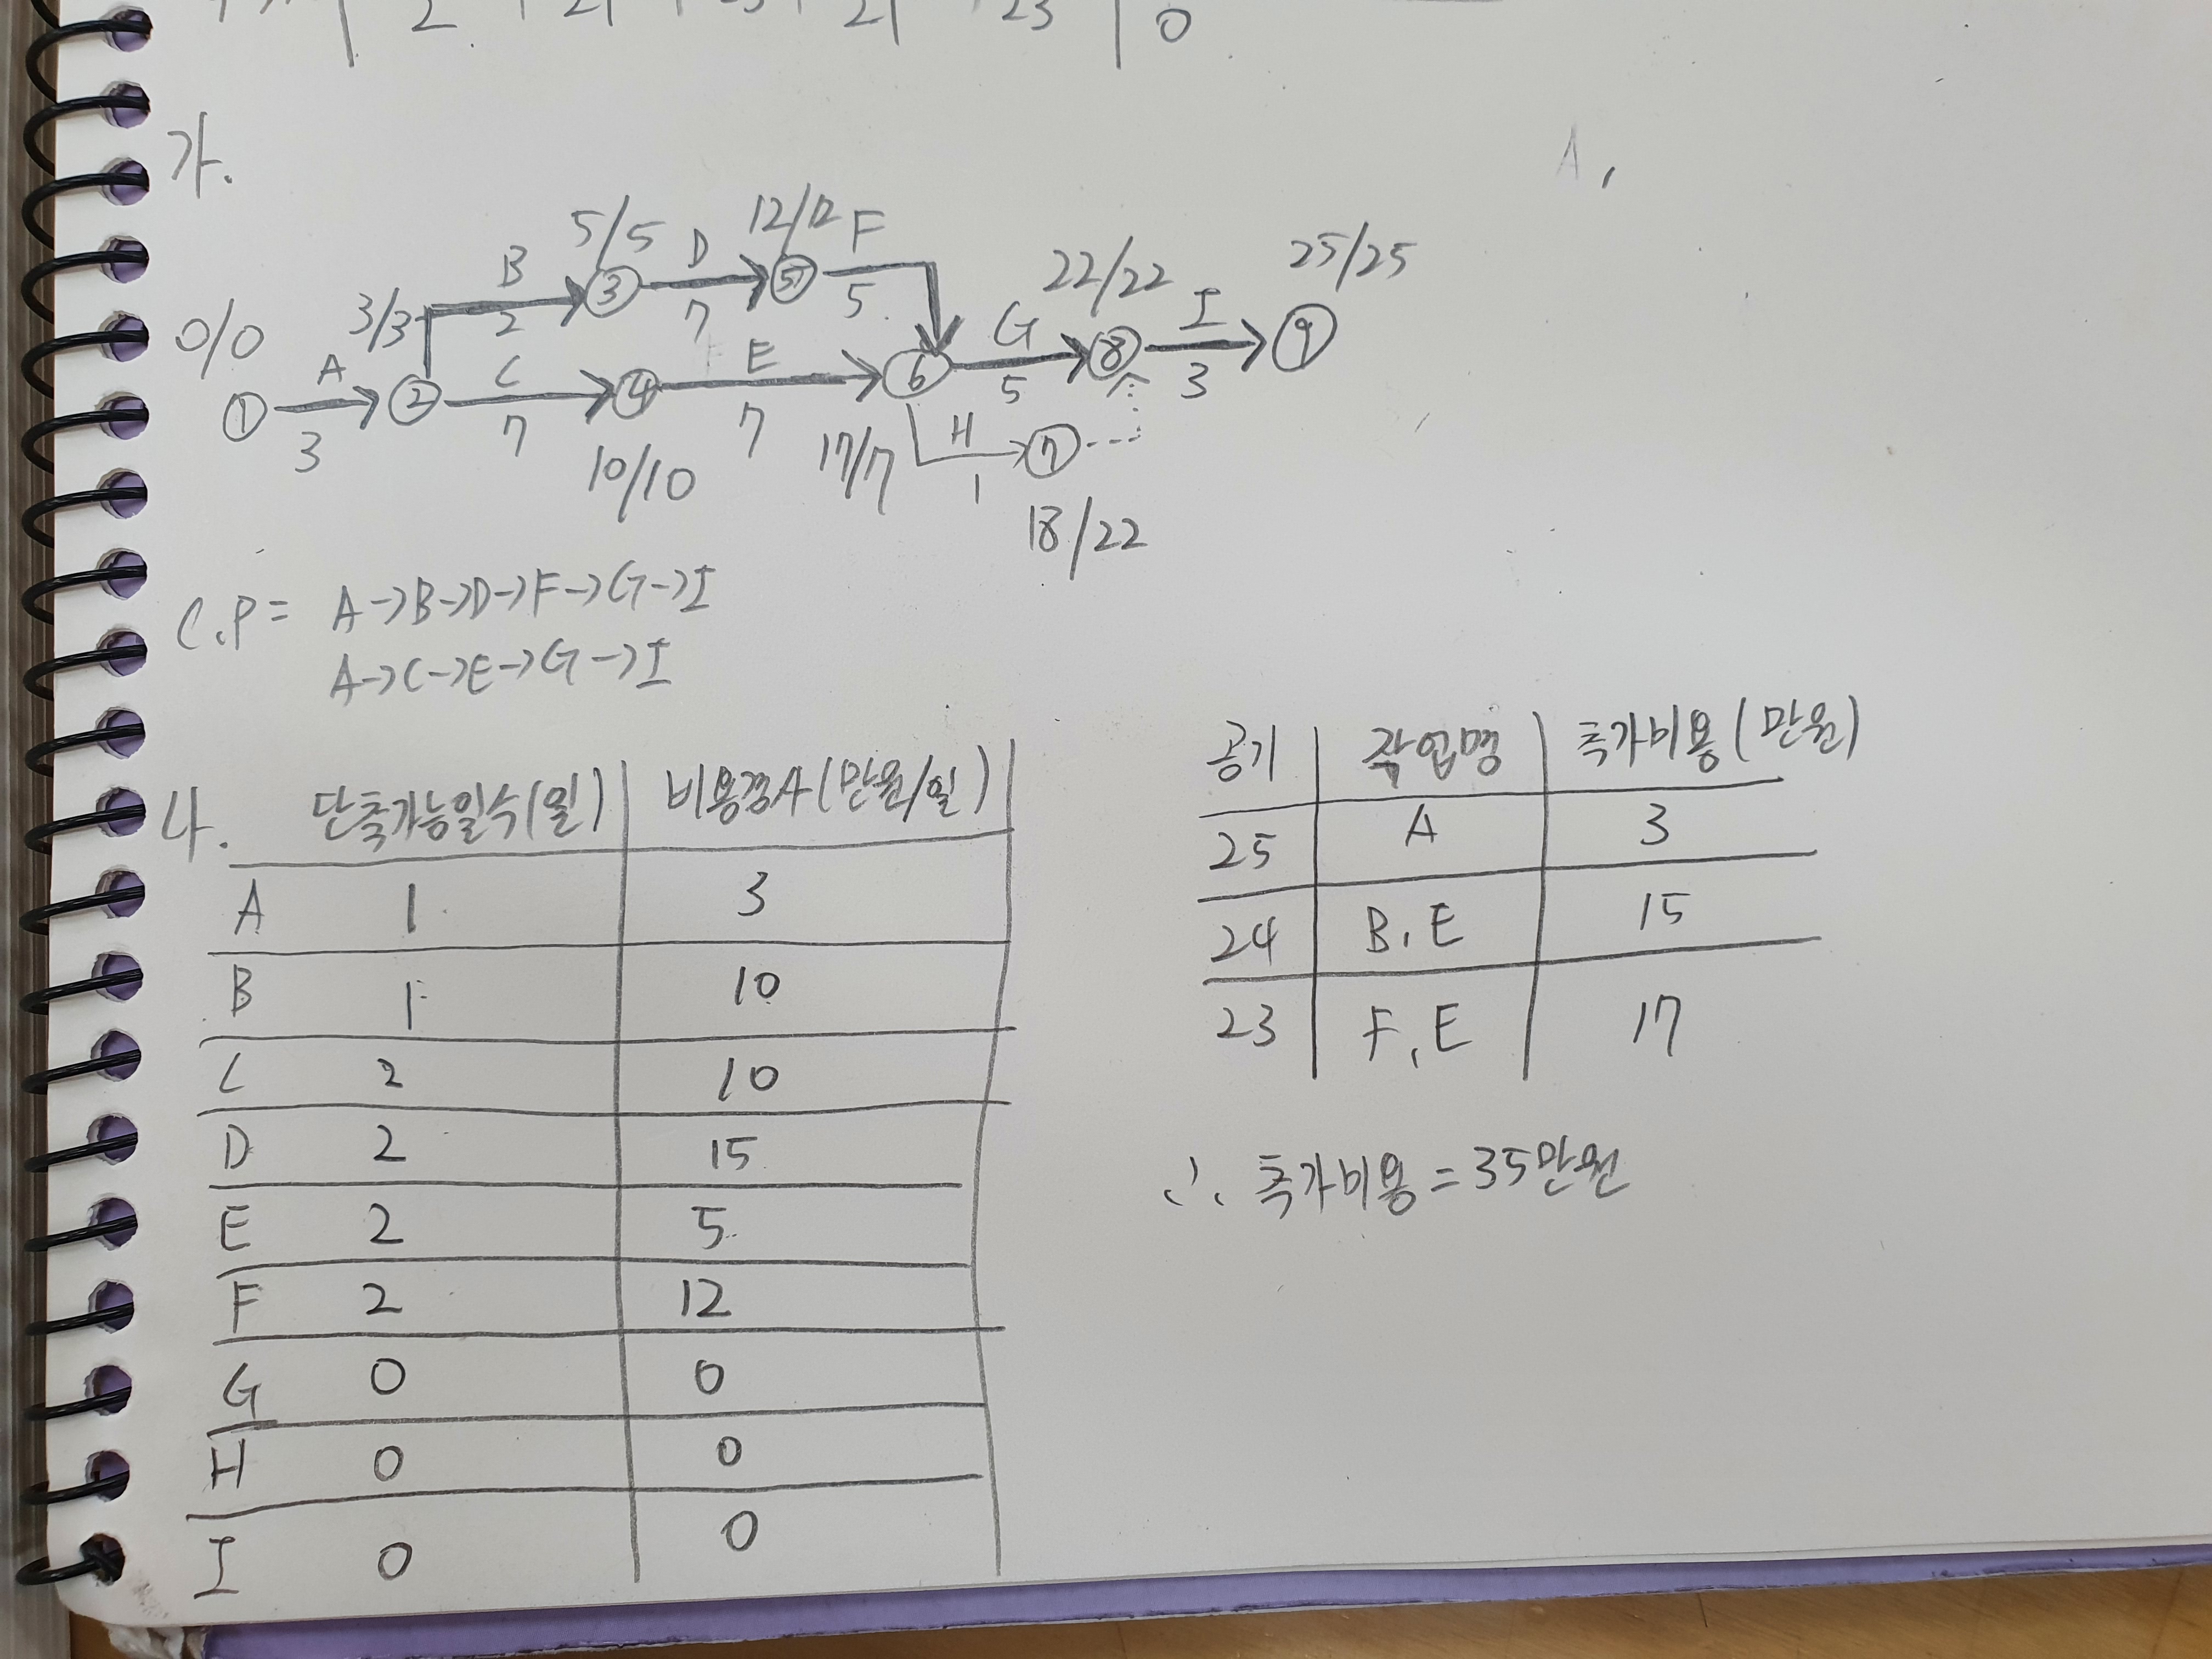 2 21 23 21 23 0
가.
A,
5/5 12/12
B D F
3/3 2 3 7 5 5 22/22 25/25
0/0 A C E G I
1 2 4 6 8 9
3 7 7 5 3
H 7
10/10 17/17 1
18/22
C.P = A→B→D→F→G→I
A→C→E→G→I
나. 단축가능일수(일) 비용경사(만원/일)
A 1 3
B 1 10
C 2 10
D 2 15
E 2 5
F 2 12
G 0 0
H 0 0
I 0 0
공기 작업명 추가비용(만원)
25 A 3
24 B, E 15
23 F, E 17
∴ 추가비용 = 35만원